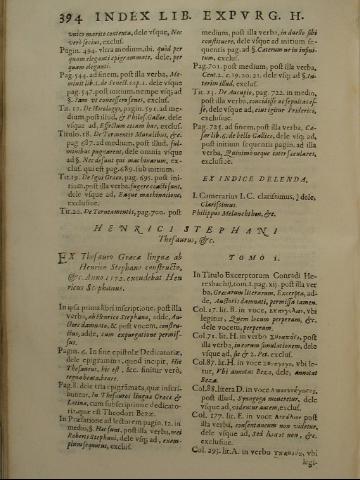 394 INDEX LIB. EXPVRG. H.
vnico morbo contenta, dele vsque, Nec
verò fecius, exclus.
Pagin. 494. vltra medium, ibi, quid per
quam eleganti epigrammate, dele, per
quam eleganti.
Pag. 544. ad finem, post illa verba,
pag. 547. post initium, nempe vsq; ad
exclus.
Tit. 17. De Horologio, pagin. 591. ad me-
dium, post illud, & Philos. Gallor. dele
vsque ad, exclus.
Titulo 18. De Tormentis Muralibus, &c.
pag. 687. ad medium, post illud, ful-
minibus pugnarent, dele omnia vsque
ad §. Nec desunt qui machinarum, ex-
clus. qui est pag. 689. sub initium.
Tit. 19. De Igni Graco, pag. 695. post ini-
tium, post illa verba, fugere coactis sunt,
dele vsque ad, Eaque machinatione,
exclusiue.
Tit. 20. De Torneamentis, pag. 700. post
medium, post illa verba, in duello sibi
constituere, dele vsque ad initium se-
quentis pag. ad §. Caterum ut in infini-
tum, exclus.
Pag. 701. post medium, post illa verba,
Cent. 2. c. 19. 20. 21. dele vsq; ad §.
exclus.
Tit. 23. De Aucupio, pag. 722. in medio,
post illa verba,
dele vsque ad, Friderici,
exclusiue.
Pag. 725. ad finem, post illa verba, Ca-
sar lib. 6. de bello Gallico, dele vsq; ad,
post initium sequentis pagin. ad illa
verba, Quinimo neque inter saculares,
exclusiue.
EX INDICE DELENDA.
I. Camerarius I. C. clarissimus, dele,
Clarissimus.
Philippus Melanchthon, &c.
HENRICI STEPHANI
Thesaurus, &c.
EX Thesauro Graca lingua ab
Henrico Stephano constructo,
&c. Anno 1572. excudebat Hen-
ricus Stephanus.
In ipsa prima libri inscriptione, post illa
verba, ab Henrico Stephano, adde, Au-
ctore damnato, & post vocem, constru-
ctus, adde, cum expurgatione permis-
sus.
Pagin. 6. In fine epistolæ Dedicatoriæ,
dele epigramma, quod incipit, Hic
Thesaurus, hic est, &c. finitur verò,
regna beata beare.
Pag. 8. dele tria epigrammata, quæ inscri-
buntur, In Thesauros lingua Graca &
Latina, cum subscriptione dedicato-
ria, quæ est Theodori Bezæ.
In Præfatione ad lectorem pagin. 12. in
medio, §. Hac sunt, post illa verba, mei
Roberti Stephani, dele vsq; ad, exem-
plum sequutus, exclus.
TOMO I.
In Titulo Excerptorum Conradi He-
resbachij, tom. 2. pag. xij. post illa ver-
ba, Gracarum literarum, Excerpta, ad-
de, Auctoris damnati, permissa tamen.
Col. 17. lit. B. in voce, vbi
legitur, Quem locum perperam, &c.
dele vocem, perperam.
Col. 17. lit. H. in verbo post
illa verba, dele
vsque ad, sic & 2. Pet. exclus.
Col. 87. lit. H. in voce, vbi le-
tur, Vbi annotat Beza, dele, annotat
Beza.
Col. 89. litera D. in voce
post illud, Synagoga moueretur, dele
vsque ad, videntur autem, exclus.
Col. 177. lit. E. in voce post
illa verba, consentaneum non videtur,
dele vsque ad, Sed Aetas non, &c.
exclusiue.
Col. 295. lit. A. in verbo vbi
legi-